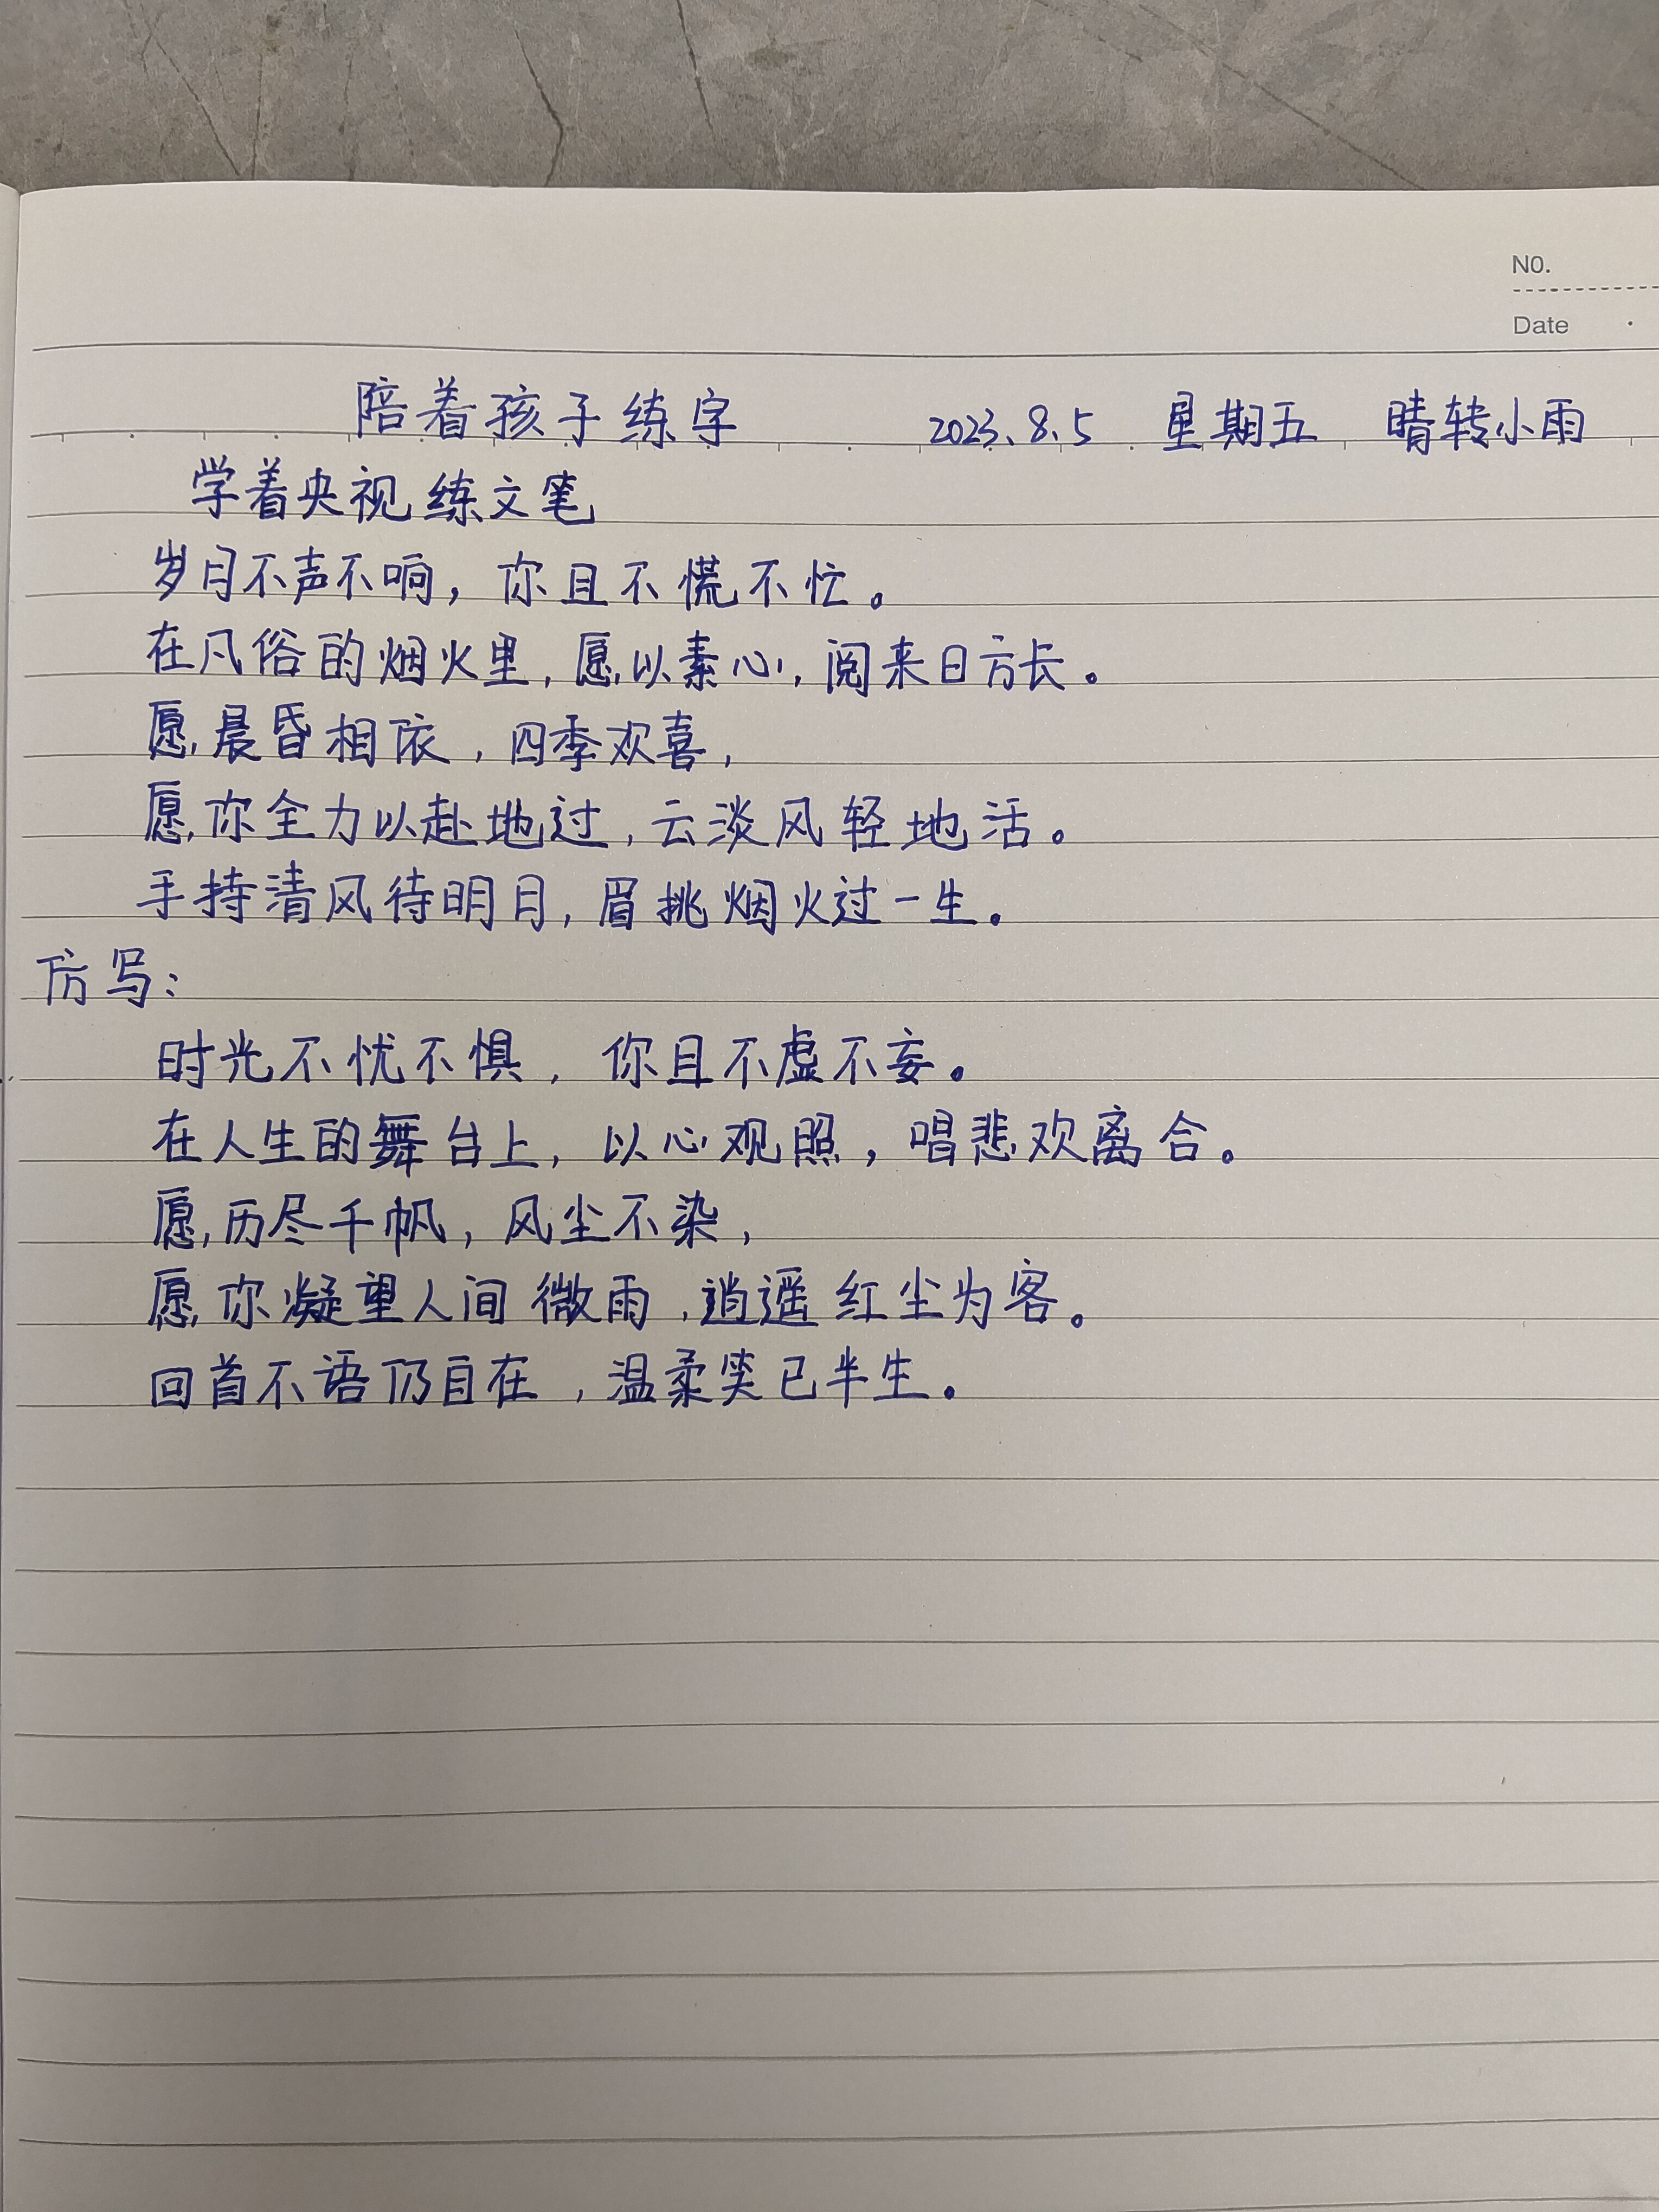 NO.
Date
陪着孩子练字 2023.8.5 星期五 晴转小雨
学着央视练文笔
岁月不声不响，你且不慌不忙。
在凡俗的烟火里，愿以素心，阅来日方长。
愿，晨昏相依，四季欢喜，
愿，你全力以赴地过，云淡风轻地活。
手持清风待明月，眉挑烟火过一生。
仿写：
时光不忧不惧，你且不虚不妄。
在人生的舞台上，以心观照，唱悲欢离合。
愿，历尽千帆，风尘不染，
愿，你凝望人间微雨，逍遥红尘为客。
回首不语仍自在，温柔笑已半生。